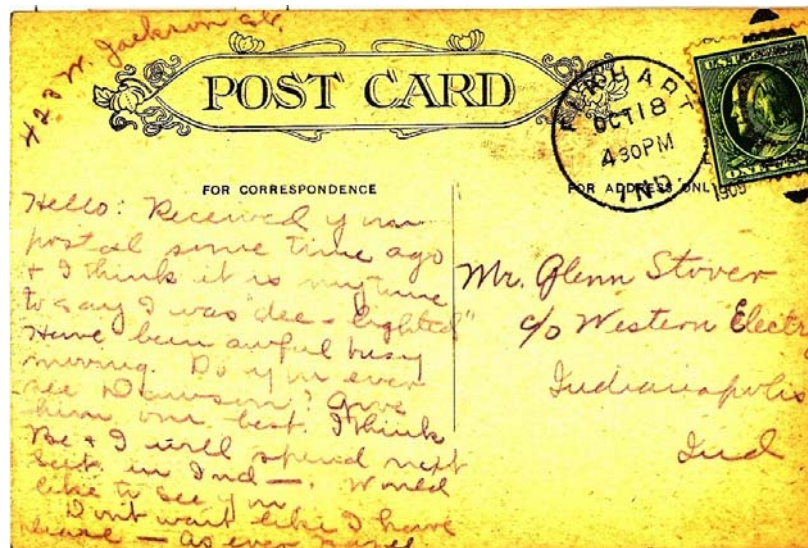 423 W. Jackson St.
POST CARD
ELKHART
OCT 18
4 30 PM
IND.
1909
U.S. POSTAGE
FOR CORRESPONDENCE
FOR ADDRESS ONLY
Hello: Received your
postal some time ago
& I think it is my time
to say I was "dee-lighted"
Have been awful busy
moving. Do you ever
see Dawson? Give
him our best. I think
Be & I will spend next
in Ind—. Would
like to see you
Dont wait like I have
please — as ever
Mr. Glenn Stover
c/o Western Electr
Indianapolis
Ind